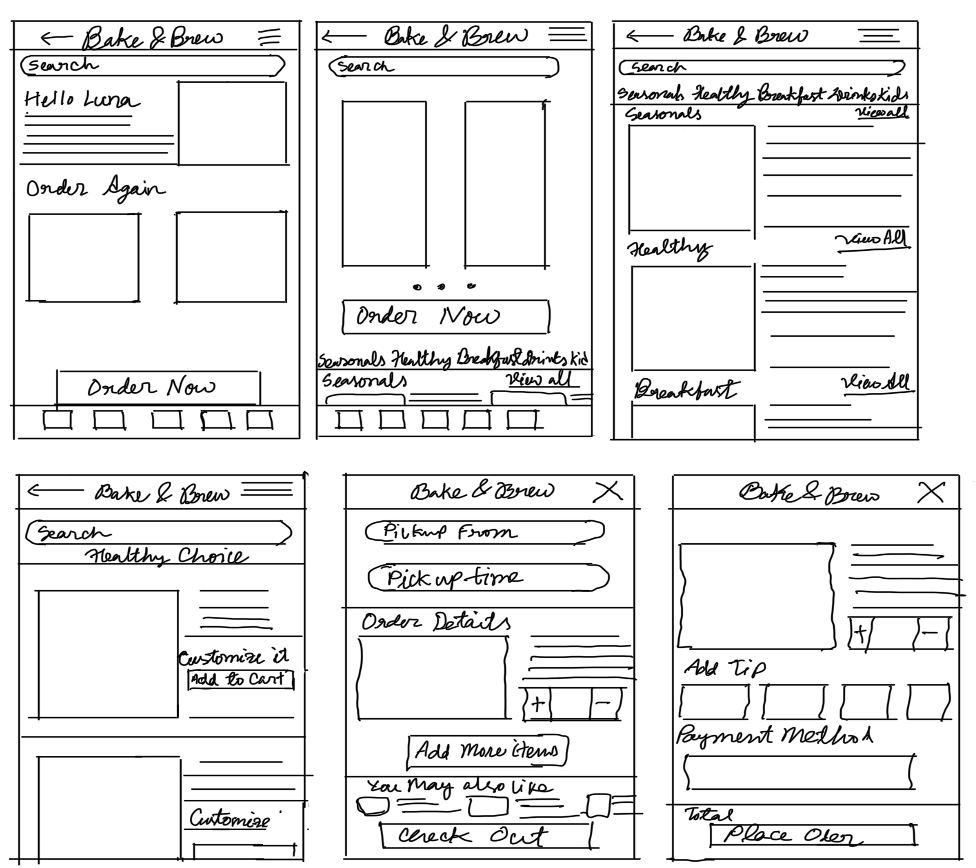 Bake & Brew
Search
Hello Luna
Order Again
Order Now
Bake & Brew
Search
Order Now
Seasonals Healthy Breakfast Drinks Kid
Seasonals View all
Bake & Brew
Search
Seasonals Healthy Breakfast Drinks Kids
Seasonals View all
Healthy View All
Breakfast View All
Bake & Brew
Search
Healthy Choice
Customize it
Add to Cart
Customize
Bake & Brew X
Pickup From
Pick up time
Order Details
+ -
Add More items
You May also like
Check Out
Bake & Brew X
+ -
Add Tip
Payment Method
Total
Place Oder